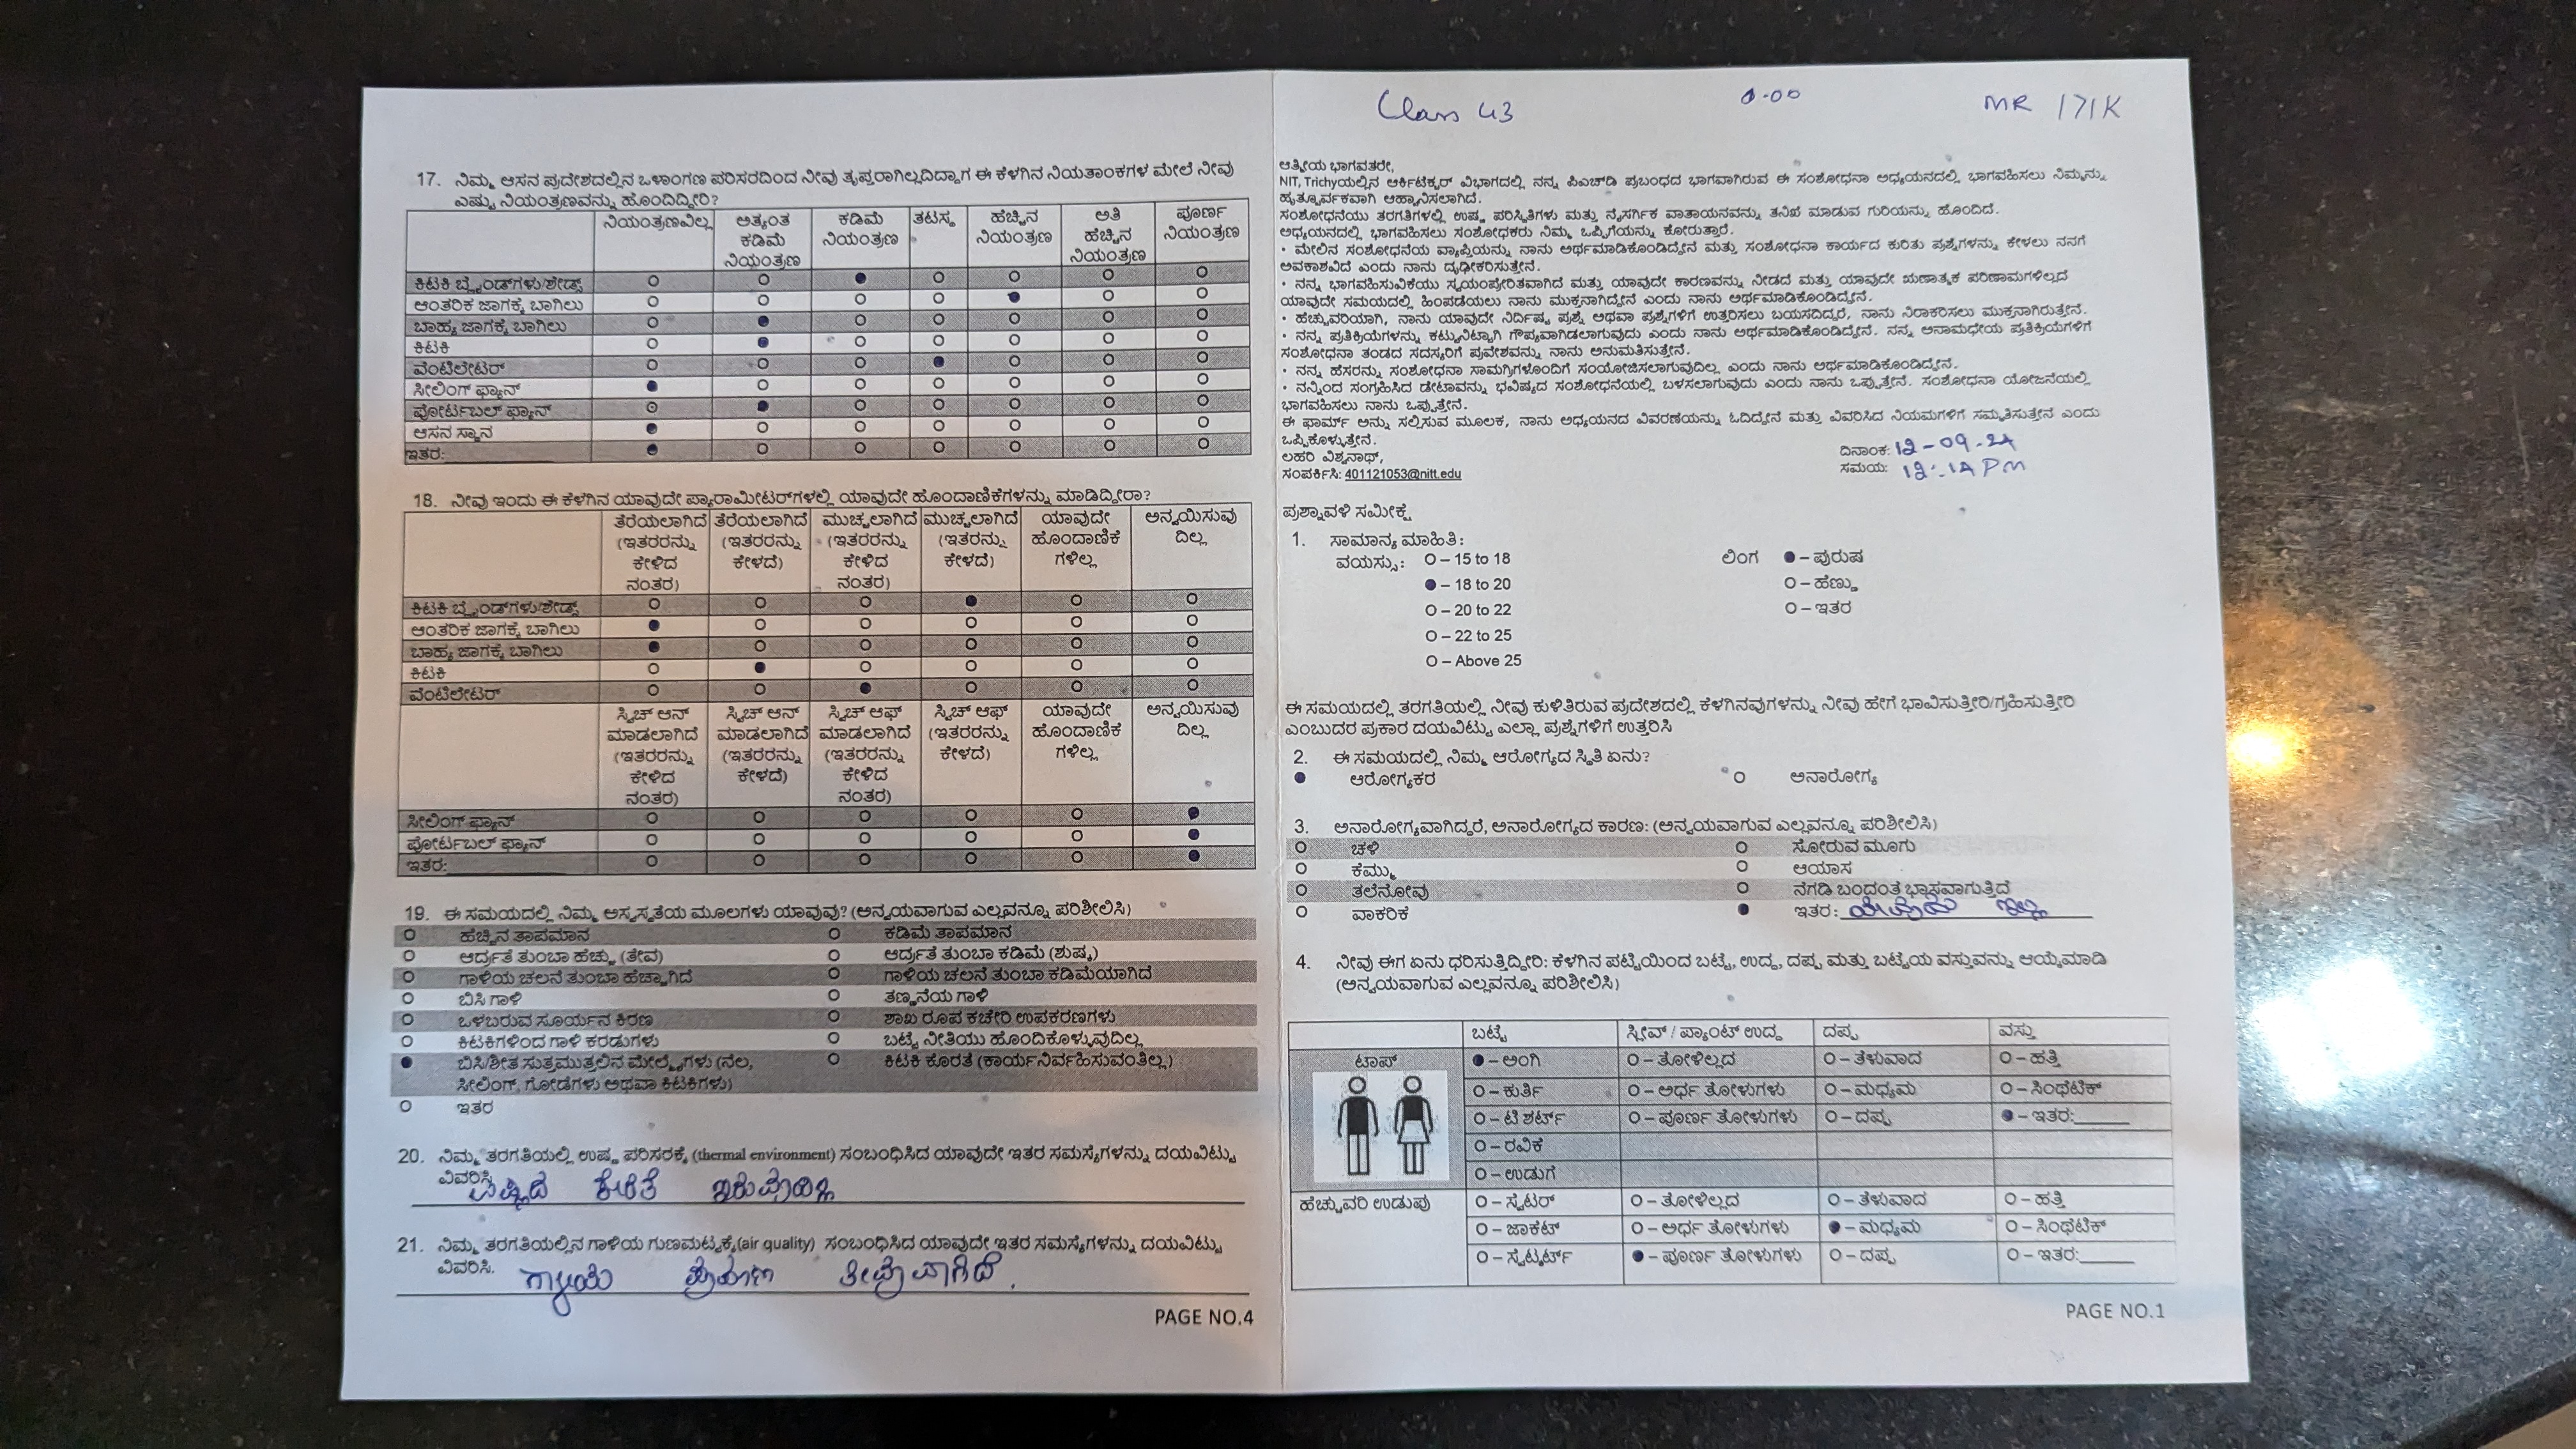 17. ನಿಮ್ಮ ಆಸನ ಪ್ರದೇಶದಲ್ಲಿನ ಒಳಾಂಗಣ ಪರಿಸರದಿಂದ ನೀವು ತೃಪ್ತರಾಗಿಲ್ಲದಿದ್ದಾಗ ಈ ಕೆಳಗಿನ ನಿಯತಾಂಕಗಳ ಮೇಲೆ ನೀವು
ಎಷ್ಟು ನಿಯಂತ್ರಣವನ್ನು ಹೊಂದಿದ್ದೀರಿ?
ನಿಯಂತ್ರಣವಿಲ್ಲ ಅತ್ಯಂತ ಕಡಿಮೆ ನಿಯಂತ್ರಣ ಕಡಿಮೆ ನಿಯಂತ್ರಣ ತಟಸ್ಥ ಹೆಚ್ಚಿನ ನಿಯಂತ್ರಣ ಅತಿ ಹೆಚ್ಚಿನ ನಿಯಂತ್ರಣ ಪೂರ್ಣ ನಿಯಂತ್ರಣ
ಕಿಟಕಿ ಬ್ಲೈಂಡ್‌ಗಳು/ಶೇಡ್ಸ್
ಆಂತರಿಕ ಜಾಗಕ್ಕೆ ಬಾಗಿಲು
ಬಾಹ್ಯ ಜಾಗಕ್ಕೆ ಬಾಗಿಲು
ಕಿಟಕಿ
ವೆಂಟಿಲೇಟರ್
ಸೀಲಿಂಗ್ ಫ್ಯಾನ್
ಪೋರ್ಟಬಲ್ ಫ್ಯಾನ್
ಆಸನ ಸ್ಥಾನ
ಇತರ:
18. ನೀವು ಇಂದು ಈ ಕೆಳಗಿನ ಯಾವುದೇ ಪ್ಯಾರಾಮೀಟರ್‌ಗಳಲ್ಲಿ ಯಾವುದೇ ಹೊಂದಾಣಿಕೆಗಳನ್ನು ಮಾಡಿದ್ದೀರಾ?
ತೆರೆಯಲಾಗಿದೆ (ಇತರರನ್ನು ಕೇಳಿದ ನಂತರ) ತೆರೆಯಲಾಗಿದೆ (ಇತರರನ್ನು ಕೇಳದೆ) ಮುಚ್ಚಲಾಗಿದೆ (ಇತರರನ್ನು ಕೇಳಿದ ನಂತರ) ಮುಚ್ಚಲಾಗಿದೆ (ಇತರರನ್ನು ಕೇಳದೆ) ಯಾವುದೇ ಹೊಂದಾಣಿಕೆ ಗಳಿಲ್ಲ ಅನ್ವಯಿಸುವು ದಿಲ್ಲ
ಕಿಟಕಿ ಬ್ಲೈಂಡ್‌ಗಳು/ಶೇಡ್ಸ್
ಆಂತರಿಕ ಜಾಗಕ್ಕೆ ಬಾಗಿಲು
ಬಾಹ್ಯ ಜಾಗಕ್ಕೆ ಬಾಗಿಲು
ಕಿಟಕಿ
ವೆಂಟಿಲೇಟರ್
ಸ್ವಿಚ್ ಆನ್ ಮಾಡಲಾಗಿದೆ (ಇತರರನ್ನು ಕೇಳಿದ ನಂತರ) ಸ್ವಿಚ್ ಆನ್ ಮಾಡಲಾಗಿದೆ (ಇತರರನ್ನು ಕೇಳದೆ) ಸ್ವಿಚ್ ಆಫ್ ಮಾಡಲಾಗಿದೆ (ಇತರರನ್ನು ಕೇಳಿದ ನಂತರ) ಸ್ವಿಚ್ ಆಫ್ (ಇತರರನ್ನು ಕೇಳದೆ) ಯಾವುದೇ ಹೊಂದಾಣಿಕೆ ಗಳಿಲ್ಲ ಅನ್ವಯಿಸುವು ದಿಲ್ಲ
ಸೀಲಿಂಗ್ ಫ್ಯಾನ್
ಪೋರ್ಟಬಲ್ ಫ್ಯಾನ್
ಇತರ:
19. ಈ ಸಮಯದಲ್ಲಿ ನಿಮ್ಮ ಅಸ್ವಸ್ಥತೆಯ ಮೂಲಗಳು ಯಾವುವು? (ಅನ್ವಯವಾಗುವ ಎಲ್ಲವನ್ನೂ ಪರಿಶೀಲಿಸಿ)
ಹೆಚ್ಚಿನ ತಾಪಮಾನ ಕಡಿಮೆ ತಾಪಮಾನ
ಆರ್ದ್ರತೆ ತುಂಬಾ ಹೆಚ್ಚು (ತೇವ) ಆರ್ದ್ರತೆ ತುಂಬಾ ಕಡಿಮೆ (ಶುಷ್ಕ)
ಗಾಳಿಯ ಚಲನೆ ತುಂಬಾ ಹೆಚ್ಚಾಗಿದೆ ಗಾಳಿಯ ಚಲನೆ ತುಂಬಾ ಕಡಿಮೆಯಾಗಿದೆ
ಬಿಸಿ ಗಾಳಿ ತಣ್ಣನೆಯ ಗಾಳಿ
ಒಳಬರುವ ಸೂರ್ಯನ ಕಿರಣ ಶಾಖ ರೂಪ ಕಚೇರಿ ಉಪಕರಣಗಳು
ಕಿಟಕಿಗಳಿಂದ ಗಾಳಿ ಕರಡುಗಳು ಬಟ್ಟೆ ನೀತಿಯು ಹೊಂದಿಕೊಳ್ಳುವುದಿಲ್ಲ
ಬಿಸಿ/ಶೀತ ಸುತ್ತಮುತ್ತಲಿನ ಮೇಲ್ಮೈಗಳು (ನೆಲ, ಕಿಟಕಿ ಕೊರತೆ (ಕಾರ್ಯನಿರ್ವಹಿಸುವಂತಿಲ್ಲ)
ಸೀಲಿಂಗ್, ಗೋಡೆಗಳು ಅಥವಾ ಕಿಟಕಿಗಳು)
ಇತರ
20. ನಿಮ್ಮ ತರಗತಿಯಲ್ಲಿ ಉಷ್ಣ ಪರಿಸರಕ್ಕೆ (thermal environment) ಸಂಬಂಧಿಸಿದ ಯಾವುದೇ ಇತರ ಸಮಸ್ಯೆಗಳನ್ನು ದಯವಿಟ್ಟು
ವಿವರಿಸಿ
21. ನಿಮ್ಮ ತರಗತಿಯಲ್ಲಿನ ಗಾಳಿಯ ಗುಣಮಟ್ಟಕ್ಕೆ(air quality) ಸಂಬಂಧಿಸಿದ ಯಾವುದೇ ಇತರ ಸಮಸ್ಯೆಗಳನ್ನು ದಯವಿಟ್ಟು
ವಿವರಿಸಿ.
PAGE NO.4
Class 43 0.00 MR 171K
ಆತ್ಮೀಯ ಭಾಗವತರೇ,
NIT, Trichyಯಲ್ಲಿನ ಆರ್ಕಿಟೆಕ್ಚರ್ ವಿಭಾಗದಲ್ಲಿ ನನ್ನ ಪಿಎಚ್‌ಡಿ ಪ್ರಬಂಧದ ಭಾಗವಾಗಿರುವ ಈ ಸಂಶೋಧನಾ ಅಧ್ಯಯನದಲ್ಲಿ ಭಾಗವಹಿಸಲು ನಿಮ್ಮನ್ನು
ಹೃತ್ಪೂರ್ವಕವಾಗಿ ಆಹ್ವಾನಿಸಲಾಗಿದೆ.
ಸಂಶೋಧನೆಯು ತರಗತಿಗಳಲ್ಲಿ ಉಷ್ಣ ಪರಿಸ್ಥಿತಿಗಳು ಮತ್ತು ನೈಸರ್ಗಿಕ ವಾತಾಯನವನ್ನು ತನಿಖೆ ಮಾಡುವ ಗುರಿಯನ್ನು ಹೊಂದಿದೆ.
ಅಧ್ಯಯನದಲ್ಲಿ ಭಾಗವಹಿಸಲು ಸಂಶೋಧಕರು ನಿಮ್ಮ ಒಪ್ಪಿಗೆಯನ್ನು ಕೋರುತ್ತಾರೆ.
• ಮೇಲಿನ ಸಂಶೋಧನೆಯ ವ್ಯಾಪ್ತಿಯನ್ನು ನಾನು ಅರ್ಥಮಾಡಿಕೊಂಡಿದ್ದೇನೆ ಮತ್ತು ಸಂಶೋಧನಾ ಕಾರ್ಯದ ಕುರಿತು ಪ್ರಶ್ನೆಗಳನ್ನು ಕೇಳಲು ನನಗೆ
ಅವಕಾಶವಿದೆ ಎಂದು ನಾನು ದೃಢೀಕರಿಸುತ್ತೇನೆ.
• ನನ್ನ ಭಾಗವಹಿಸುವಿಕೆಯು ಸ್ವಯಂಪ್ರೇರಿತವಾಗಿದೆ ಮತ್ತು ಯಾವುದೇ ಕಾರಣವನ್ನು ನೀಡದೆ ಮತ್ತು ಯಾವುದೇ ಋಣಾತ್ಮಕ ಪರಿಣಾಮಗಳಿಲ್ಲದೆ
ಯಾವುದೇ ಸಮಯದಲ್ಲಿ ಹಿಂಪಡೆಯಲು ನಾನು ಮುಕ್ತನಾಗಿದ್ದೇನೆ ಎಂದು ನಾನು ಅರ್ಥಮಾಡಿಕೊಂಡಿದ್ದೇನೆ.
• ಹೆಚ್ಚುವರಿಯಾಗಿ, ನಾನು ಯಾವುದೇ ನಿರ್ದಿಷ್ಟ ಪ್ರಶ್ನೆ ಅಥವಾ ಪ್ರಶ್ನೆಗಳಿಗೆ ಉತ್ತರಿಸಲು ಬಯಸದಿದ್ದರೆ, ನಾನು ನಿರಾಕರಿಸಲು ಮುಕ್ತನಾಗಿರುತ್ತೇನೆ.
• ನನ್ನ ಪ್ರತಿಕ್ರಿಯೆಗಳನ್ನು ಕಟ್ಟುನಿಟ್ಟಾಗಿ ಗೌಪ್ಯವಾಗಿಡಲಾಗುವುದು ಎಂದು ನಾನು ಅರ್ಥಮಾಡಿಕೊಂಡಿದ್ದೇನೆ. ನನ್ನ ಅನಾಮಧೇಯ ಪ್ರತಿಕ್ರಿಯೆಗಳಿಗೆ
ಸಂಶೋಧನಾ ತಂಡದ ಸದಸ್ಯರಿಗೆ ಪ್ರವೇಶವನ್ನು ನಾನು ಅನುಮತಿಸುತ್ತೇನೆ.
• ನನ್ನ ಹೆಸರನ್ನು ಸಂಶೋಧನಾ ಸಾಮಗ್ರಿಗಳೊಂದಿಗೆ ಸಂಯೋಜಿಸಲಾಗುವುದಿಲ್ಲ ಎಂದು ನಾನು ಅರ್ಥಮಾಡಿಕೊಂಡಿದ್ದೇನೆ.
• ನನ್ನಿಂದ ಸಂಗ್ರಹಿಸಿದ ಡೇಟಾವನ್ನು ಭವಿಷ್ಯದ ಸಂಶೋಧನೆಯಲ್ಲಿ ಬಳಸಲಾಗುವುದು ಎಂದು ನಾನು ಒಪ್ಪುತ್ತೇನೆ. ಸಂಶೋಧನಾ ಯೋಜನೆಯಲ್ಲಿ
ಭಾಗವಹಿಸಲು ನಾನು ಒಪ್ಪುತ್ತೇನೆ.
ಈ ಫಾರ್ಮ್ ಅನ್ನು ಸಲ್ಲಿಸುವ ಮೂಲಕ, ನಾನು ಅಧ್ಯಯನದ ವಿವರಣೆಯನ್ನು ಓದಿದ್ದೇನೆ ಮತ್ತು ವಿವರಿಸಿದ ನಿಯಮಗಳಿಗೆ ಸಮ್ಮತಿಸುತ್ತೇನೆ ಎಂದು
ಒಪ್ಪಿಕೊಳ್ಳುತ್ತೇನೆ.
ಲಹರಿ ವಿಶ್ವನಾಥ್,
ಸಂಪರ್ಕಿಸಿ: 401121053@nitt.edu
ದಿನಾಂಕ: 12-09-24
ಸಮಯ: 12:14 PM
ಪ್ರಶ್ನಾವಳಿ ಸಮೀಕ್ಷೆ
1. ಸಾಮಾನ್ಯ ಮಾಹಿತಿ:
ವಯಸ್ಸು: – 15 to 18 ಲಿಂಗ – ಪುರುಷ
– 18 to 20 – ಹೆಣ್ಣು
– 20 to 22 – ಇತರ
– 22 to 25
– Above 25
ಈ ಸಮಯದಲ್ಲಿ ತರಗತಿಯಲ್ಲಿ ನೀವು ಕುಳಿತಿರುವ ಪ್ರದೇಶದಲ್ಲಿ ಕೆಳಗಿನವುಗಳನ್ನು ನೀವು ಹೇಗೆ ಭಾವಿಸುತ್ತೀರಿ/ಗ್ರಹಿಸುತ್ತೀರಿ
ಎಂಬುದರ ಪ್ರಕಾರ ದಯವಿಟ್ಟು ಎಲ್ಲಾ ಪ್ರಶ್ನೆಗಳಿಗೆ ಉತ್ತರಿಸಿ
2. ಈ ಸಮಯದಲ್ಲಿ ನಿಮ್ಮ ಆರೋಗ್ಯದ ಸ್ಥಿತಿ ಏನು?
ಆರೋಗ್ಯಕರ ಅನಾರೋಗ್ಯ
3. ಅನಾರೋಗ್ಯವಾಗಿದ್ದರೆ, ಅನಾರೋಗ್ಯದ ಕಾರಣ: (ಅನ್ವಯವಾಗುವ ಎಲ್ಲವನ್ನೂ ಪರಿಶೀಲಿಸಿ)
ಚಳಿ ಸೋರುವ ಮೂಗು
ಕೆಮ್ಮು ಆಯಾಸ
ತಲೆನೋವು ನೆಗಡಿ ಬಂದಂತೆ ಭಾಸವಾಗುತ್ತಿದೆ
ವಾಕರಿಕೆ ಇತರ:
4. ನೀವು ಈಗ ಏನು ಧರಿಸುತ್ತಿದ್ದೀರಿ: ಕೆಳಗಿನ ಪಟ್ಟಿಯಿಂದ ಬಟ್ಟೆ, ಉದ್ದ, ದಪ್ಪ ಮತ್ತು ಬಟ್ಟೆಯ ವಸ್ತುವನ್ನು ಆಯ್ಕೆಮಾಡಿ
(ಅನ್ವಯವಾಗುವ ಎಲ್ಲವನ್ನೂ ಪರಿಶೀಲಿಸಿ)
ಬಟ್ಟೆ ಸ್ಲೀವ್ / ಪ್ಯಾಂಟ್ ಉದ್ದ ದಪ್ಪ ವಸ್ತು
ಟಾಪ್ – ಅಂಗಿ – ತೋಳಿಲ್ಲದ – ತೆಳುವಾದ – ಹತ್ತಿ
– ಕುರ್ತಿ – ಅರ್ಧ ತೋಳುಗಳು – ಮಧ್ಯಮ – ಸಿಂಥೆಟಿಕ್
– ಟಿ ಶರ್ಟ್ – ಪೂರ್ಣ ತೋಳುಗಳು – ದಪ್ಪ – ಇತರ:
– ರವಿಕೆ
– ಉಡುಗೆ
ಹೆಚ್ಚುವರಿ ಉಡುಪು – ಸ್ವೆಟರ್ – ತೋಳಿಲ್ಲದ – ತೆಳುವಾದ – ಹತ್ತಿ
– ಜಾಕೆಟ್ – ಅರ್ಧ ತೋಳುಗಳು – ಮಧ್ಯಮ – ಸಿಂಥೆಟಿಕ್
– ಸ್ವೆಟ್ಶರ್ಟ್ – ಪೂರ್ಣ ತೋಳುಗಳು – ದಪ್ಪ – ಇತರ:
PAGE NO.1